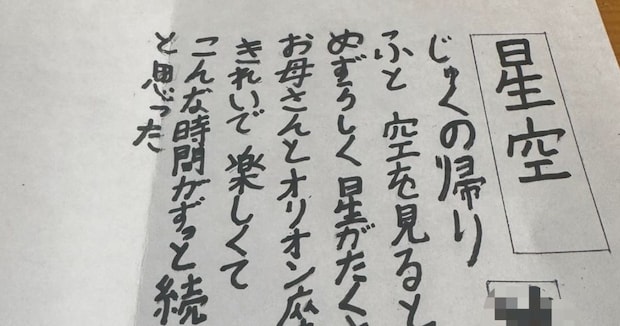 星空
じゅくの帰り
ふと空を見ると
めずらしく星がたく
お母さんとオリオン座
きれいで楽しくて
こんな時間がずっと続
と思った